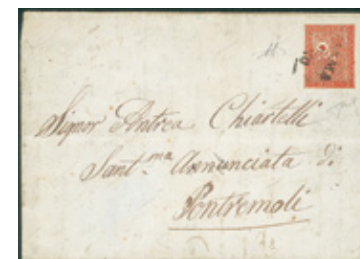 Signor Antrea Chiartelli
Sant.ma Annunciata di
Pontremoli